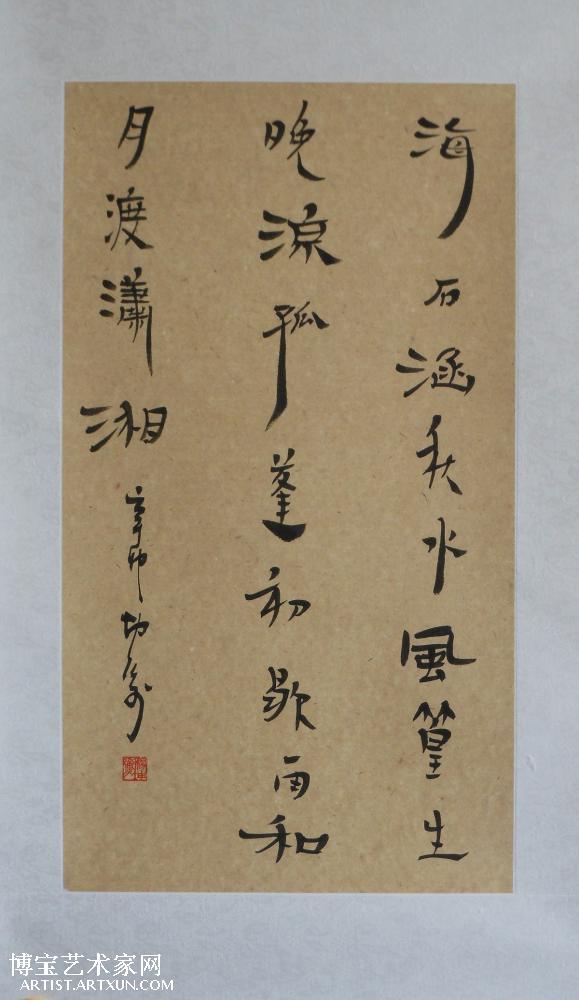 海石涵秋水風篁生
晚涼孤蓬初歇雨和
月渡瀟湘
辛卯
博宝艺术家网
ARTIST.ARTXUN.COM